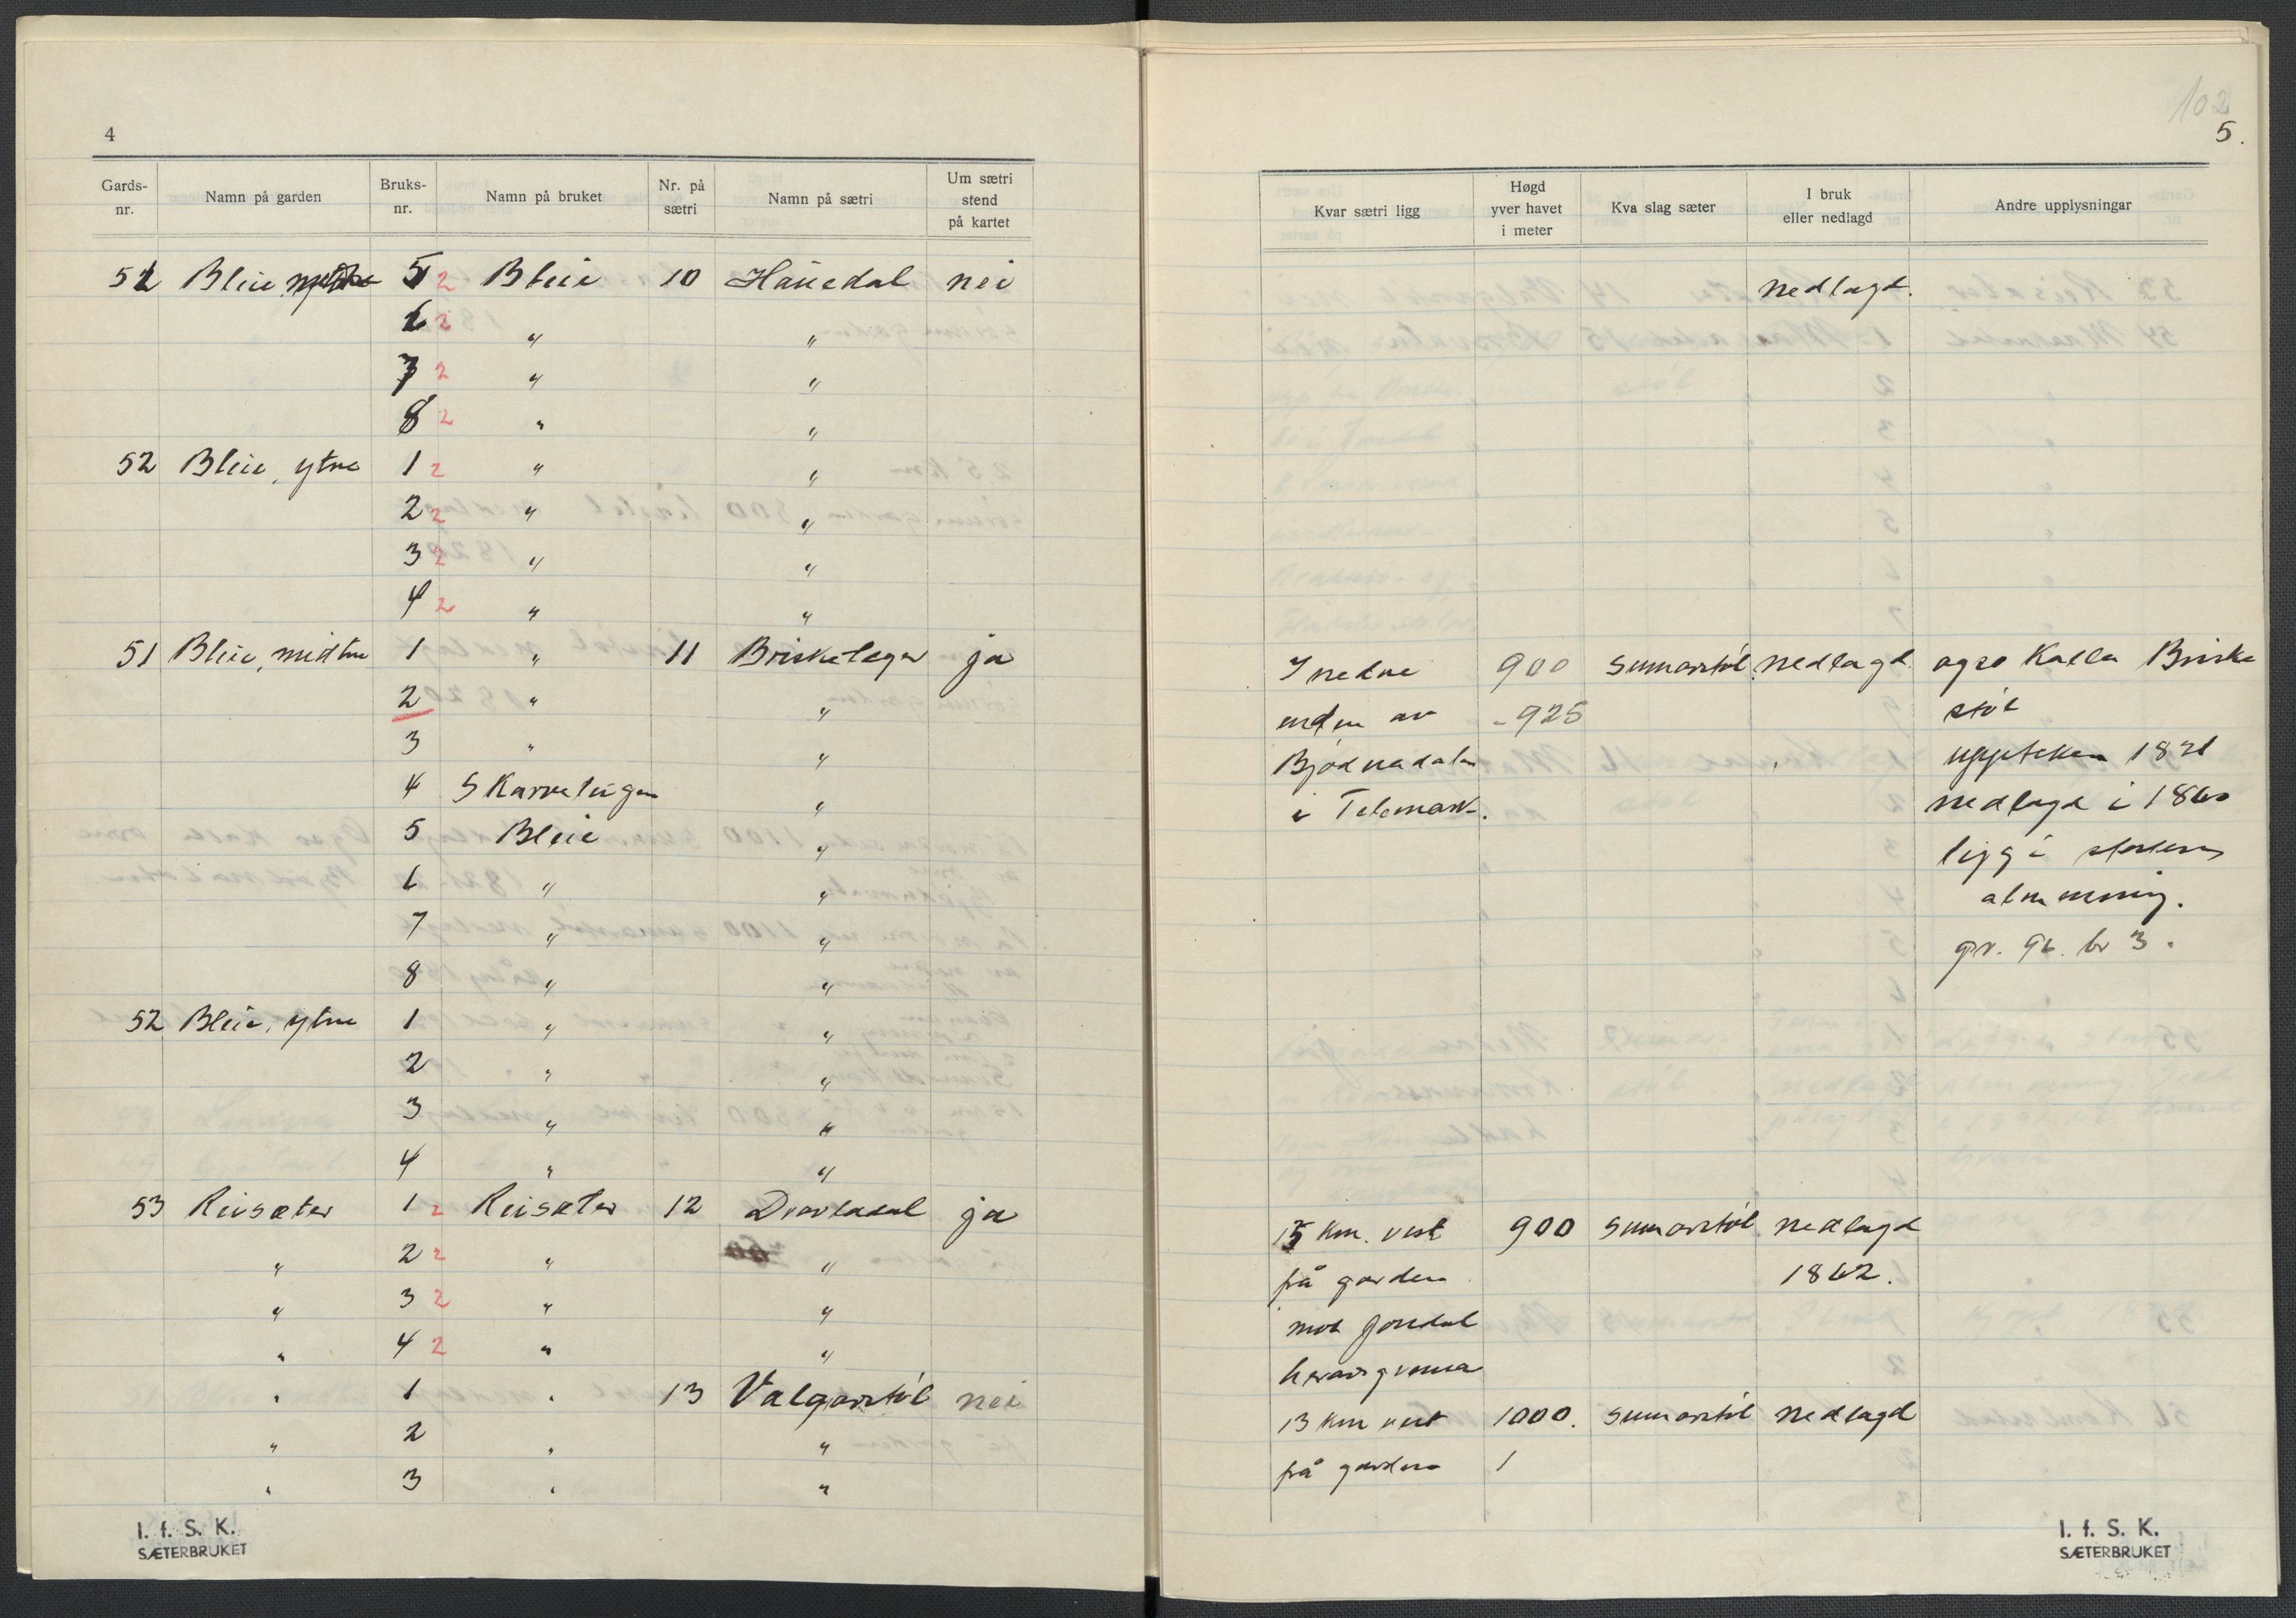 4
Gards-nr. Namn på garden Bruks-nr. Namn på bruket Nr. på sætri Namn på sætri Um sætri stend på kartet
51 Bleie, midtre 5 2 Bleie 10 Hausdal nei
6 2 " "
7 2 " "
8 2 " "
52 Bleie, ytre 1 2 " "
2 2 " "
3 2 " "
4 2 " "
51 Bleie, midtre 1 " 11 Briskelæger ja
2 " "
3 " "
4 Skarveteigen "
5 Bleie "
6 " "
7 " "
8 " "
52 Bleie, ytre 1 " "
2 " "
3 " "
4 " "
53 Reisæter 1 2 Reisæter 12 Dravladal ja
" 2 2 " "
" 3 2 " "
" 4 2 " "
" 1 " 13 Valgarstøl nei
" 2 " "
" 3 " "
I. f. S. K.
SÆTERBRUKET
102
5.
Kvar sætri ligg Høgd yver havet i meter Kva slag sæter I bruk eller nedlagd Andre upplysningar
nedlagt.
I nedre 900 sumarstøl. nedlagd. ogso kalla Briske
enden av - 925 støl
Bjødnadalen uppteken 1821
i Telemark. nedlagd i 1860
ligg i statens
almenning.
gr. 96. br 3.
15 km. vest 900 sumarstøl nedlagd
frå garden 1862.
mot Jondal
heradsgrensa
13 km vest 1000. sumarstøl nedlagd
frå garden 1
I. f. S. K.
SÆTERBRUKET